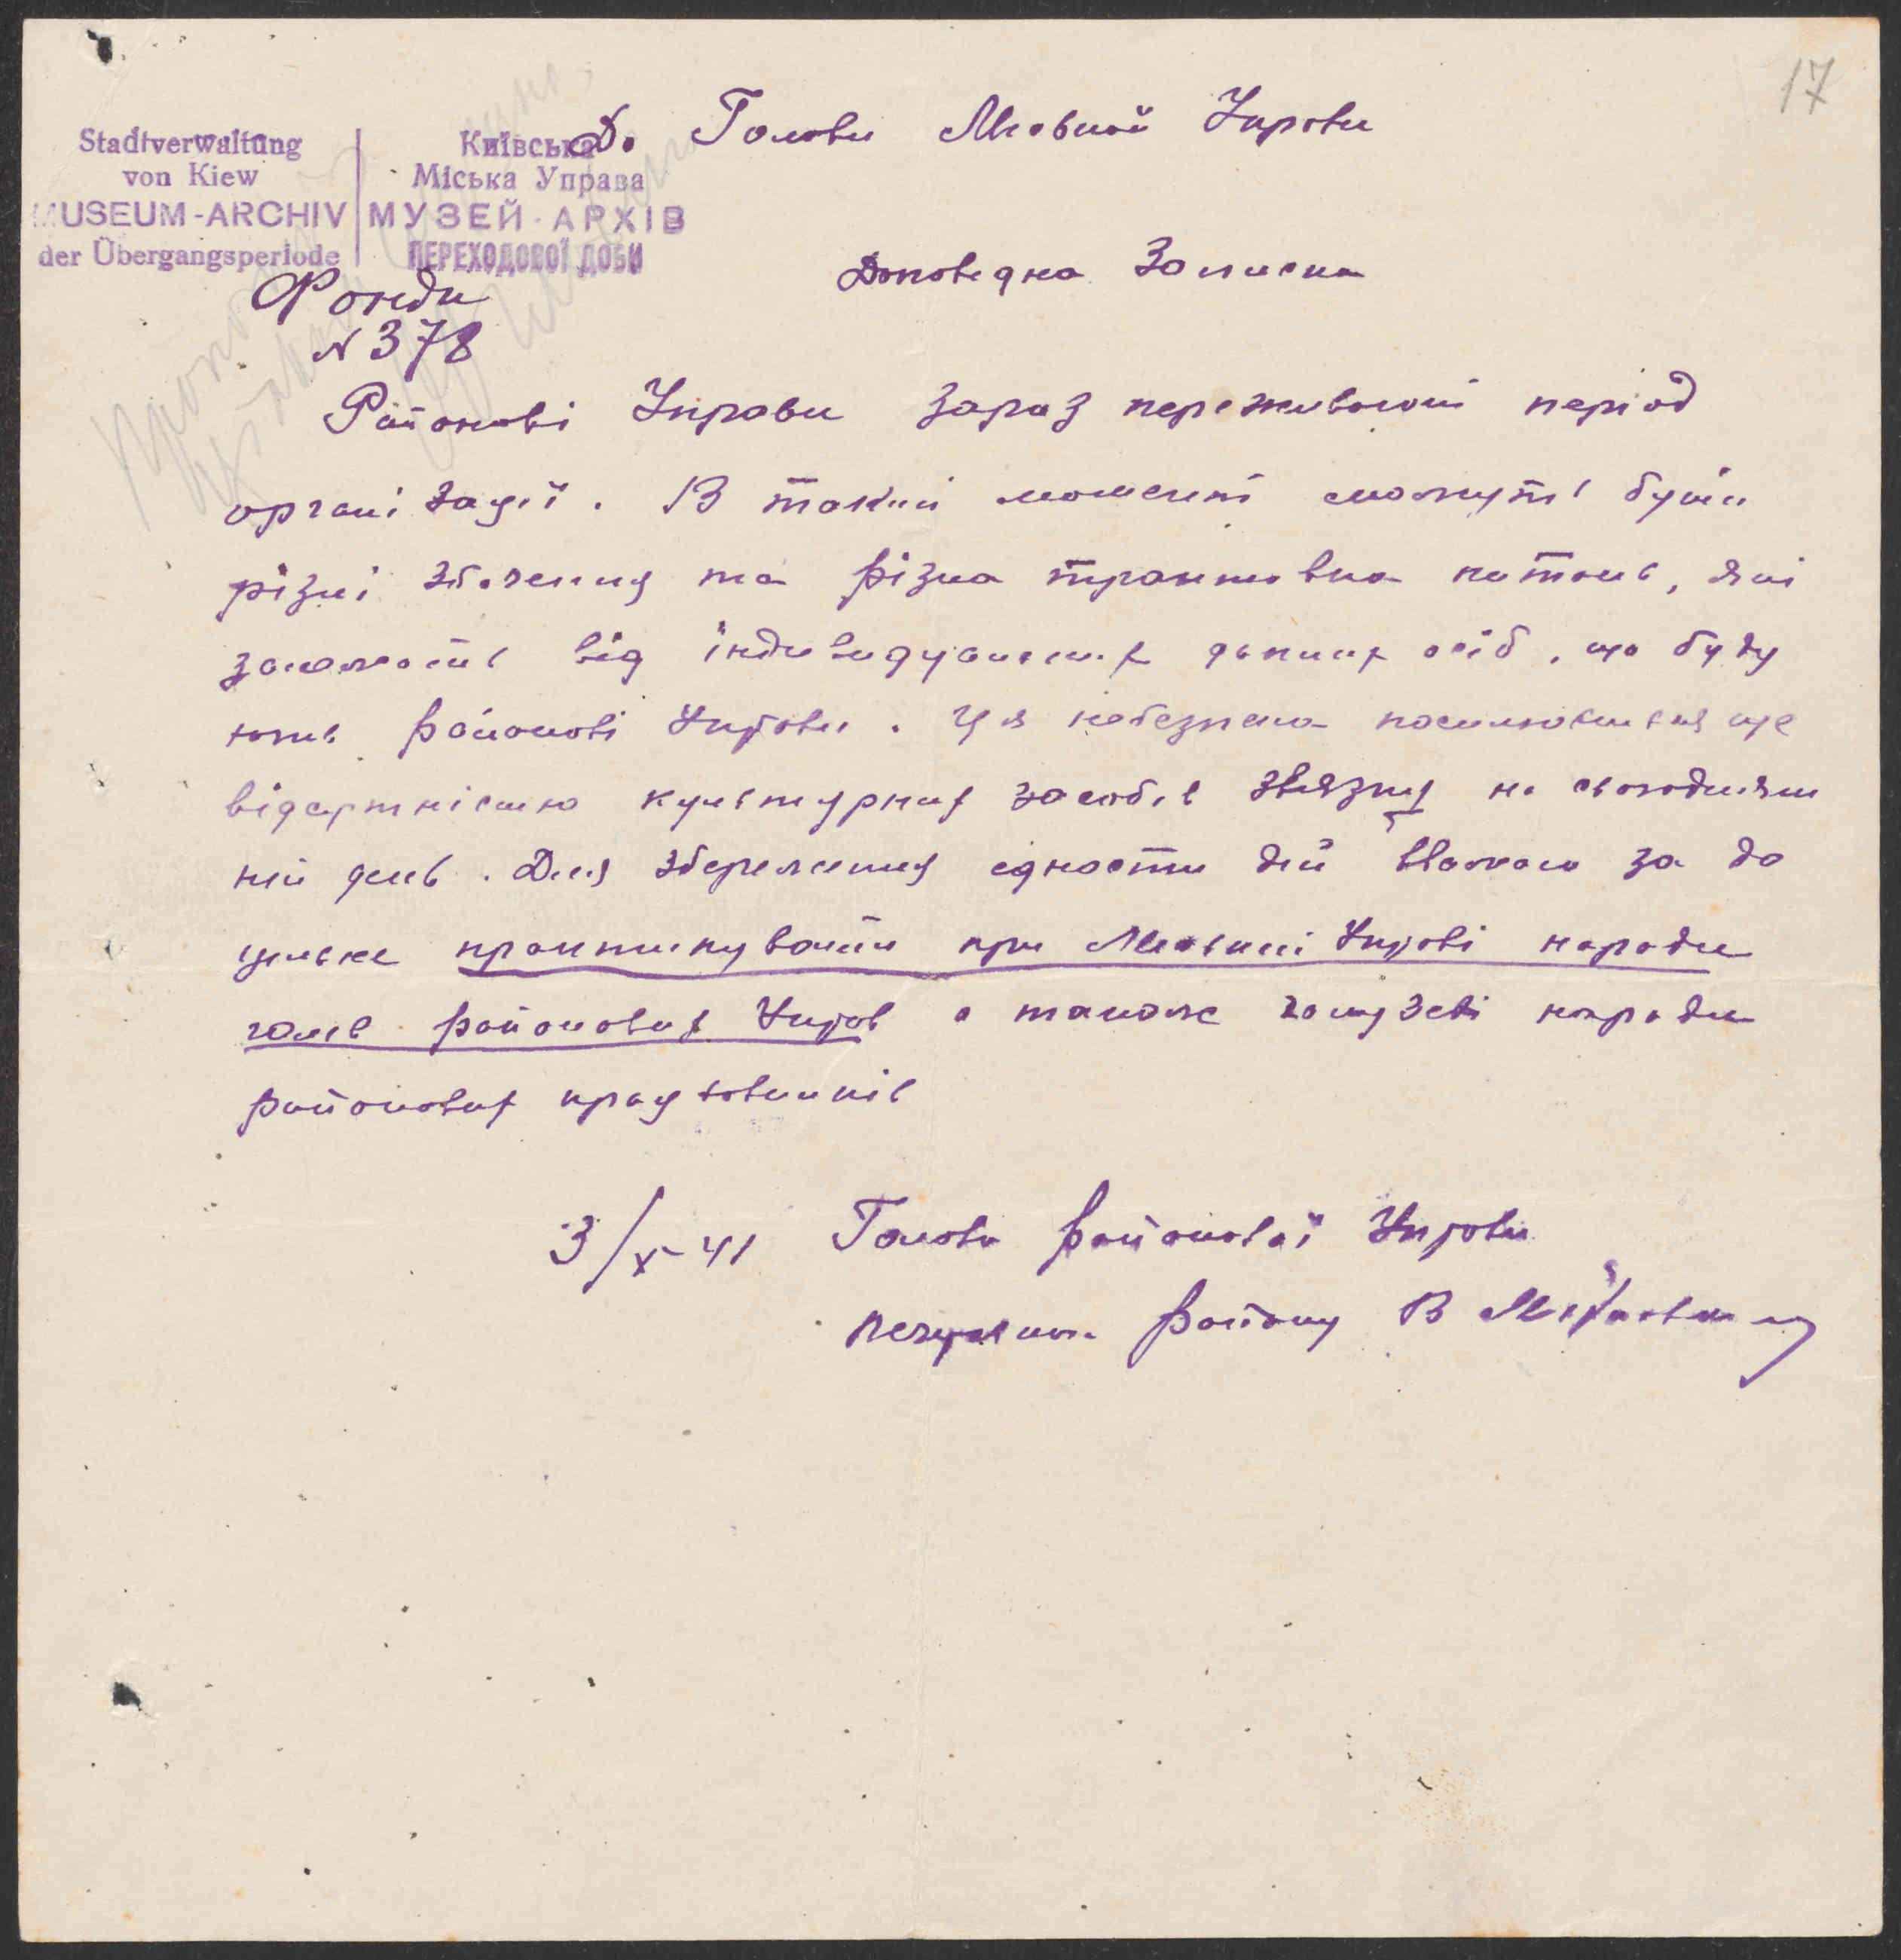 17
До Голови Міської Управи
Stadtverwaltung
von Kiew
MUSEUM-ARCHIV
der Übergangsperiode
Київська
Міська Управа
МУЗЕЙ-АРХІВ
ПЕРЕХОДОВОЇ ДОБИ
Фонди
N 378
Доповедна Записка
Районові Управи зараз переживають період
організації. В такий момент можуть бути
різні збочення та різна трактовка питань, які
залежать від індивидуальних думок осіб, що буду
ють районові Управи. Ця небезпека посилюється ще
відсутністю культурних засобів звязку на сьогодняш
ній день. Для збереження єдности дій вважаю за до
цільне практикувати при Міській Управі наради
голів районових Управ а також галузеві наради
районових працьовників
3/X-41 Голова районової Управи
печерськ. району В